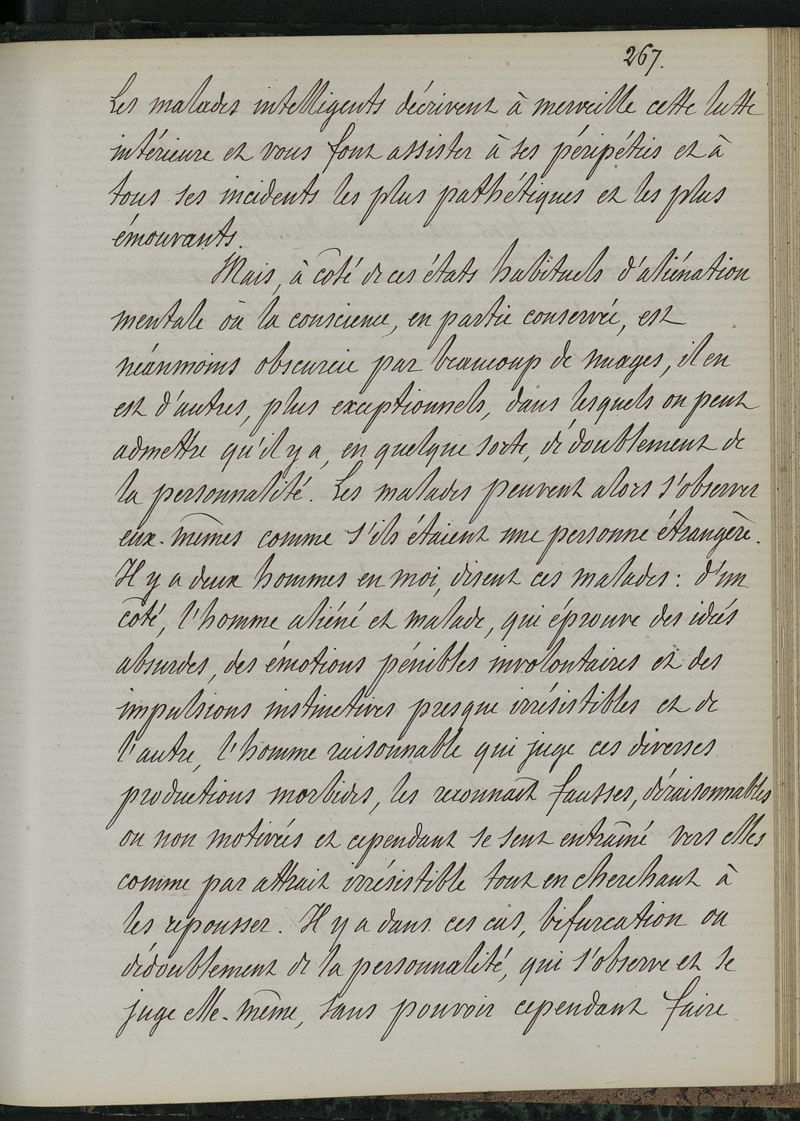 267.
Les malades intelligents décrivent à merveille cette lutte
intérieure et vous font assister à ses péripéties et à
tous ses incidents les plus pathétiques et les plus
émouvants.
Mais, à côté de ces états habituels d'aliénation
mentale où la conscience, en partie conservée, est
néanmoins obscurcie par beaucoup de nuages, il en
est d'autres, plus exceptionnels, dans lesquels on peut
admettre qu'il y a, en quelque sorte, dédoublement de
la personnalité. Les malades peuvent alors s'observer
eux-mêmes comme s'ils étaient une personne étrangère.
Il y a deux hommes en moi, disent ces malades : d'un
côté, l'homme aliéné et malade, qui éprouve des idées
absurdes, des émotions pénibles involontaires et des
impulsions instinctives presque irrésistibles et de
l'autre, l'homme raisonnable qui juge ces diverses
productions morbides, les reconnaît fausses, déraisonnables
ou non motivées et cependant se sent entraîné vers elles
comme par attrait irrésistible tout en cherchant à
les repousser. Il y a dans ces cas, bifurcation ou
dédoublement de la personnalité, qui s'observe et se
juge elle-même, sans pouvoir cependant faire